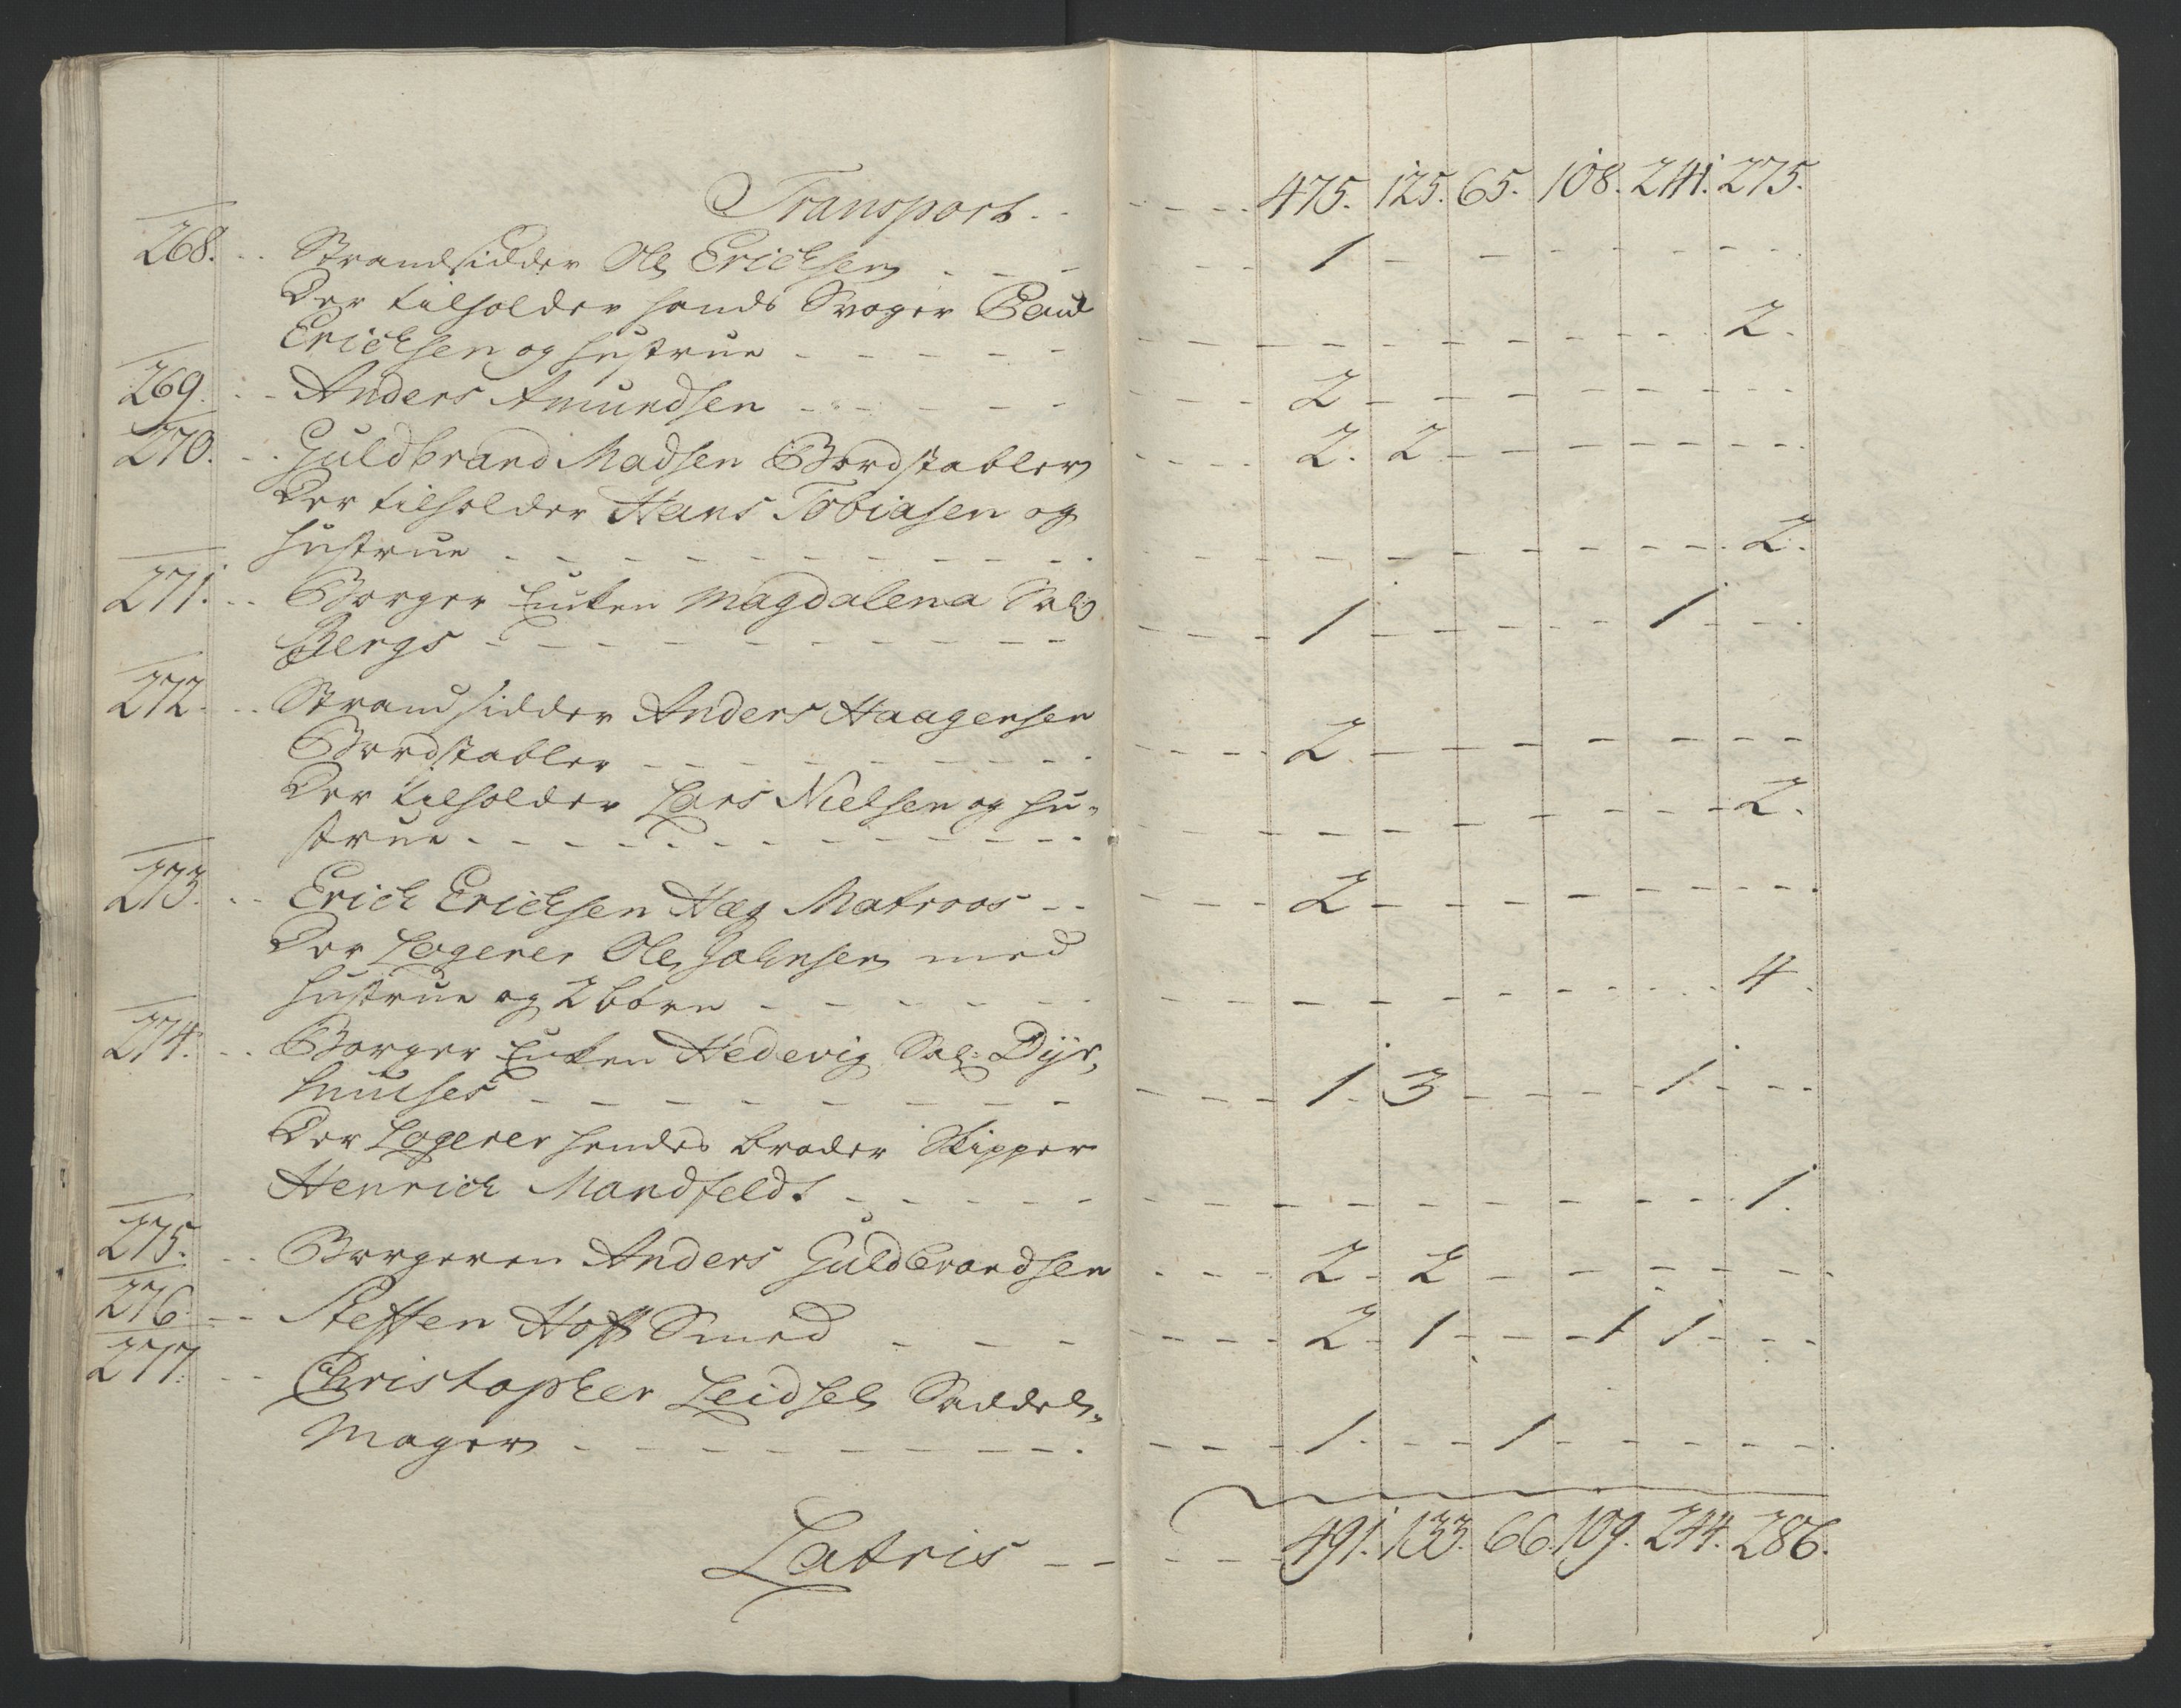 Transport - - - - - 475. 125. 65. 108. 241. 275.
268. - - Strandsidder Ole Erichsen - - - - - 1 - - - - - -
Der tilholder hands Svoger Paul
Erichsen og hustrue - - - - - - - - - - - 2.
269. - - Anders Amundsen - - - - - 2 - - - - - -
270. - - Guldbrand Madsen Bordstabler - - - - 2. 2 - - - - -
Der tilholder Hans Tobiasen og
hustrue - - - - - - - - - - - - 2.
271. - - Borger Enken Magdalena Sal
Bergs - - - - - - - - 1 - - - - 1 - -
272. - - Strandsidder Anders Haagensen
Bordstabler - - - - - - - 2. - - - - - -
Der tilholder Lars Nielsen og hu-
strue - - - - - - - - - - - - 2.
273. - - Erich Erichsen Hæg Matroos - - - - - 2 - - - - - -
Der Logerer Ole Johnsen med
hustrue og 2 børn - - - - - - - - - - 4.
274. - - Borger Enken Hedevig Sal: Dÿr,
huuses - - - - - - - - 1. 3 - - - 1 - -
Der Logerer hendes broder Skipper
Henrich Mandfeldt - - - - - - - - - - 1.
275. - - Borgeren Anders Guldbrandsen - - - 2 - 2 - - - - -
276. - - Steffen Hoff Smed - - - - - - 2 - 1 - - 1 1 - -
277. - - Christopher Leidsel Saddel-
Mager - - - - - - - - - 1 - - - 1 - - - -
Latris - - - - 491. 133. 66. 109. 244. 286.